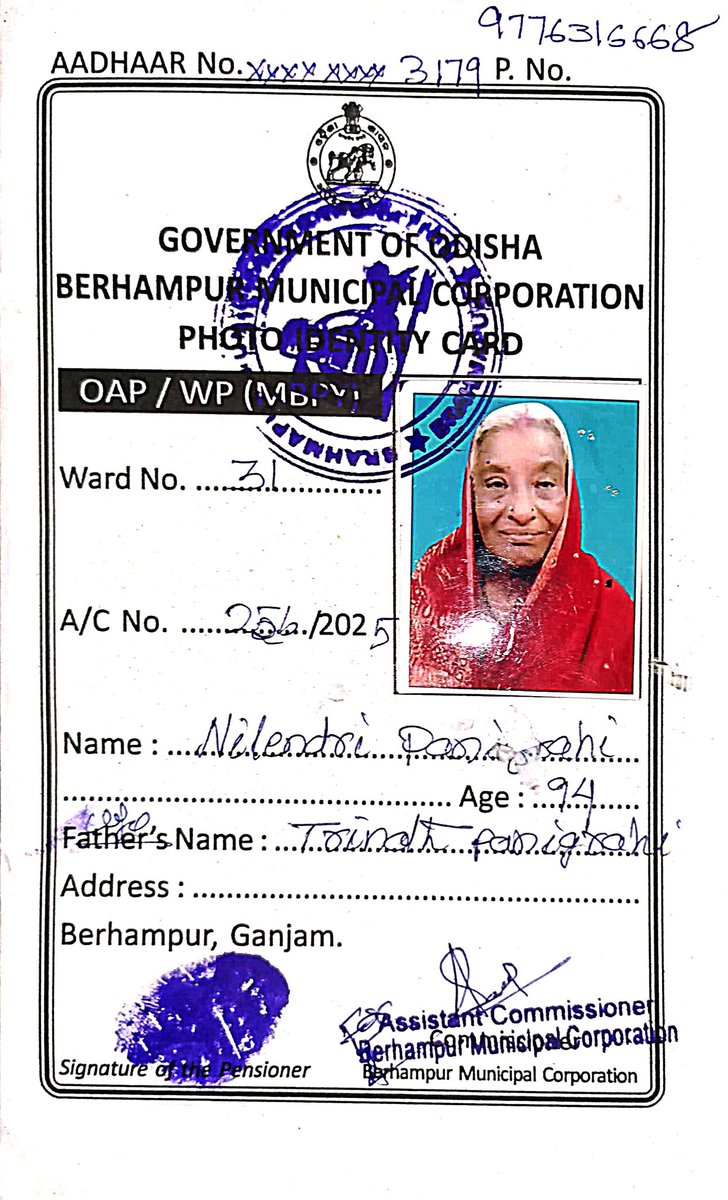 9776316668
AADHAAR No. xxxx xxxx 3179 P. No.
GOVERNMENT OF ODISHA
BERHAMPUR MUNICIPAL CORPORATION
PHOTO IDENTITY CARD
OAP / WP (MBPY)
Ward No. ....31.............
A/C No. ....256..../2025
Name : ...Nilendri Panigrahi...
.................................................. Age : ..94......
Father's Name : ..Trinath panigrahi
Address : ..........................................................
Berhampur, Ganjam.
Assistant Commissioner
Commissioner
Berhampur Municipal Corporation
Signature of the Pensioner
Berhampur Municipal Corporation